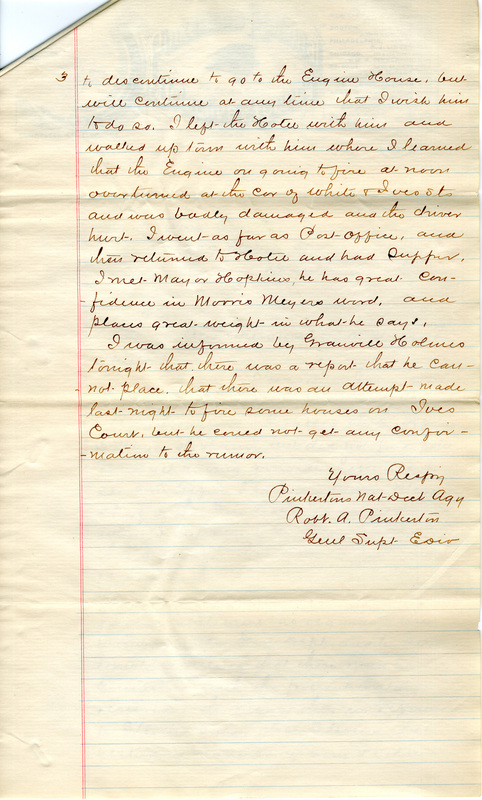 3
to discontinue to go to the Engine House, but
will continue at any time that I wish him
to do so. I left the Hotel with him and
walked up town with him where I learned
that the Engine on going to fire at noon
overturned at the cor of White & Ives Sts
and was badly damaged and the driver
hurt. I went as far as Post-Office, and
then returned to Hotel and had supper.
I met Mayor Hopkins, he has great con-
fidence in Morris Meyers word, and
places great weight in what he says.
I was informed by Granville Holmes
tonight that there was a report that he can-
not place. that there was an attempt made
last night to fire some houses on Ives
Court, but he could not get any confir-
-mation to the rumor.
Yours Respy
Pinkertons Nat Dect Agy
Robt. A. Pinkerton
Genl Supt